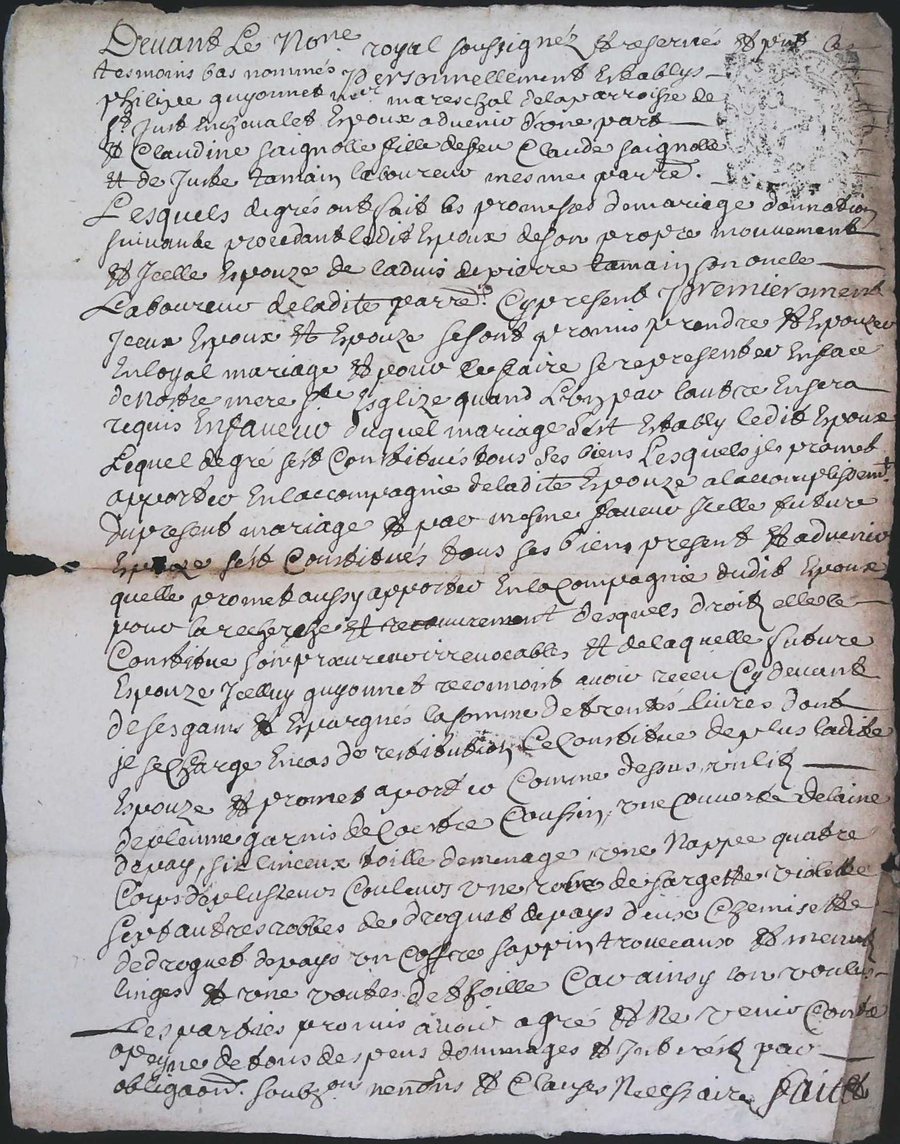 Devant Le No.re royal soussignéz et reservés et
tesmoins bas nommés Personnellement Establys
philipe guyonnet mareschal dela parroisse de
St Just Enchevalet Espoux advenir d'une part
et Claudine saignolle fille de feu Claude saignolle
et de Juste tamain laboureur mesme parre.
Lesquels de gré ont fait les promesses de mariage donnation
suivante procedant ledit Espoux de son propre mouvement
et Icelle Espouze de ladvis de pierre tamain son oncle
Laboureur de ladite parre. Cy present Premierement
Iceux Espoux et Espouze se sont promis prendre et Espouzer
En loyal mariage et pour ce faire se representer En face
de Nostre mere ste Esglize quand L'un par lautre En sera
requis En faveur duquel mariage s'est Estably ledit Espoux
Lequel de gré s'est Constitués tous ses biens Lesquels je promet
apporter En la compagnie de ladite Espouze a laccomplissemt
du present mariage et par mesme faveur Icelle future
Espouze s'est Constitués tous ses biens present et advenir
quelle promet aussy apporter En la Compagnie dudit Espoux
pour la recherche et recouvrement desquels droitz elle le
Constitue son procureur irrevocables et de laquelle future
Espouze Icelluy guyonnet reconnoit avoir receu Cy devant
de ses gains et Espargnes la somme de trentes livres dont
je se Charge En cas de restitution Ce Constitue de plus ladite
Espouze et promet aporter Comme dessus un lit
de pleume garnis de Coitre Coussin, une Couverte de laine
de pay, six linceux toille de menage une Nappe quatre
Corps de plusieurs Couleurs une robe de sargette violette
sept autres robbes de droguet de pays deux Chemisette
de droguet de pays un Coffre sappin trousseaux et menus
linges et une de thoille Car ainsy l'on voulus
Les parties promis avoir agré et Ne venir Contre
a peyne de tous despens dommages et Interestz par
obligaon. soubzon renons et Clauses Necessaires faict